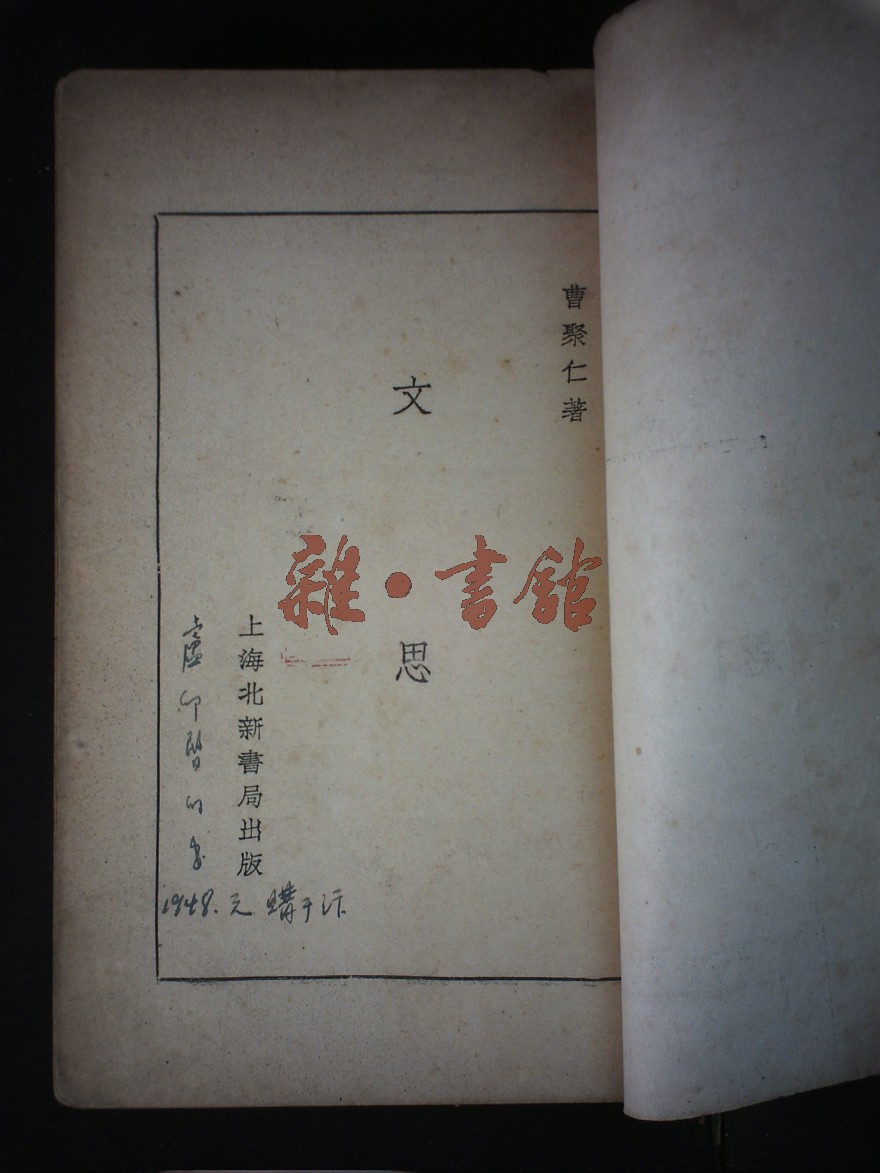 曹聚仁著
文思
雜·書館
上海北新書局出版
1948.元 購于汴